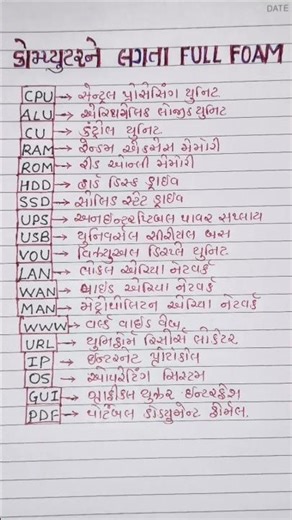 DATE
કોમ્પ્યુટરને લગતા FULL FOAM
CPU → સેન્ટ્રલ પ્રોસેસિંગ યુનિટ
ALU → એરિથમેલિક લોજીક યુનિટ
CU → કંટ્રોલ યુનિટ
RAM → રેન્ડમ એક્સેસ મેમોરી
ROM → રીડ ઓન્લી મેમોરી
HDD → હાર્ડ ડિસ્ક ડ્રાઈવ
SSD → સોલિડ સ્ટેટ ડ્રાઈવ
UPS → અનઇન્ટરપ્ટિબલ પાવર સપ્લાય
USB → યુનિવર્સલ સીરીયલ બસ
VOU → વિઝ્યુઅલ ડિસ્પ્લે યુનિટ
LAN → લોકલ એરિયા નેટવર્ક
WAN → વાઇડ એરિયા નેટવર્ક
MAN → મેટ્રોપોલિટન એરિયા નેટવર્ક
WWW → વર્લ્ડ વાઇડ વેબ
URL → યુનિફોર્મ રિસોર્સ લોકેટર
IP → ઇન્ટરનેટ પ્રોટોકોલ
OS → ઓપરેટિંગ સિસ્ટમ
GUI → ગ્રાફીકલ યુઝર ઇન્ટરફેસ
PDF → પોર્ટેબલ ડોક્યુમેન્ટ ફોર્મેલ.